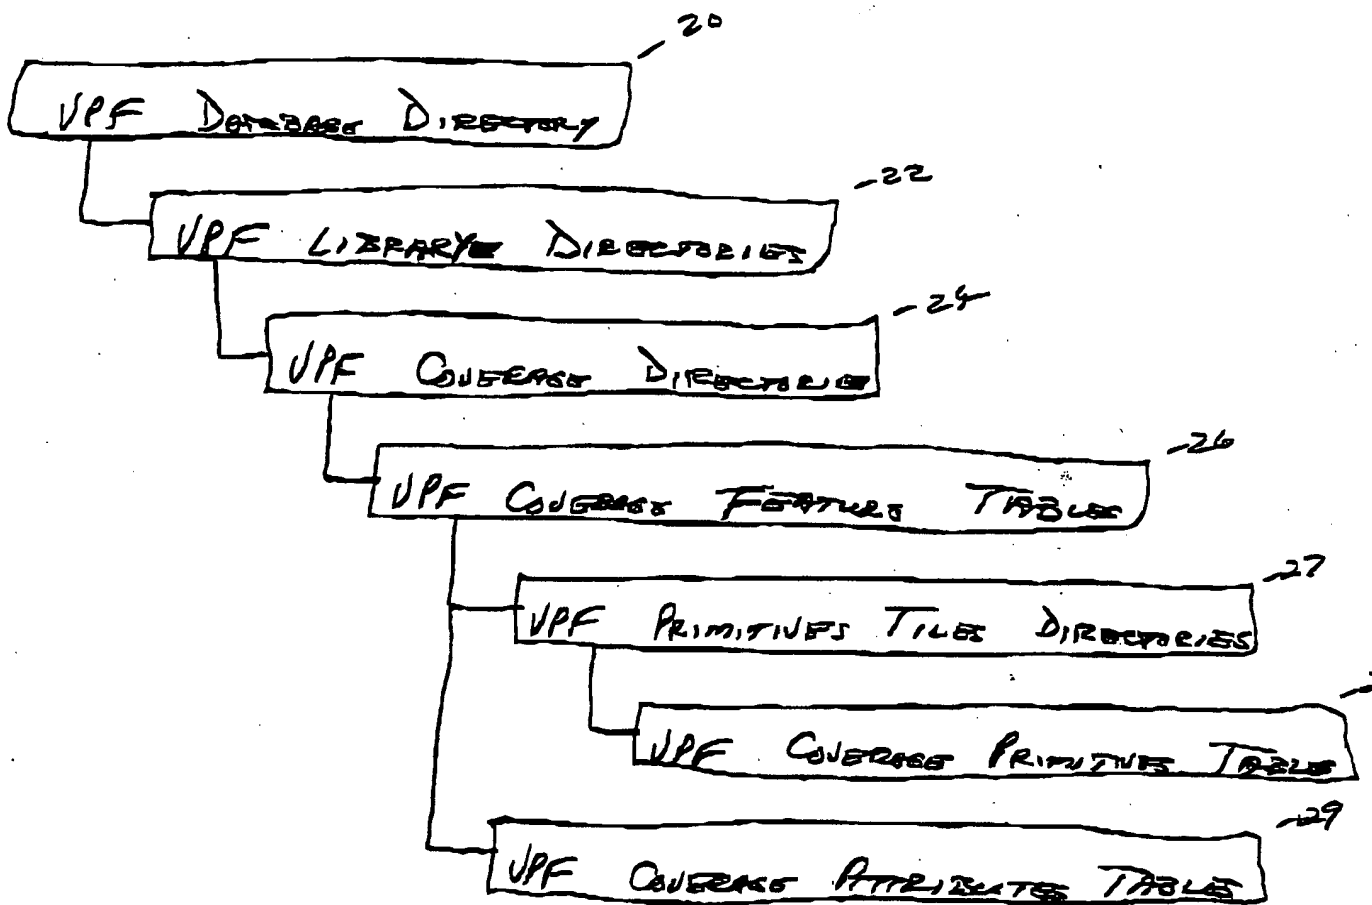 20
VPF DATABASE DIRECTORY
22
VPF LIBRARY DIRECTORIES
24
VPF COVERAGE DIRECTORIE
26
VPF COVERAGE FEATURE TABLES
27
VPF PRIMITIVES TILES DIRECTORIES
VPF COVERAGE PRIMITIVES TABLE
29
VPF COVERAGE ATTRIBUTES TABLES